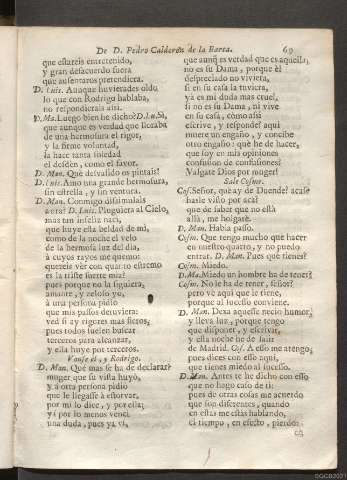 De D. Pedro Calderòn de la Barca. 69
que estareis entretenido,
y gran desacuerdo fuera
que ausentaros pretendiera.
D. Luis. Aunque huvierades oìdo
lo que con Rodrigo hablaba,
no respondierais assi.
D. Ma. Luego bien he dicho? D. Lu. Sì,
que aunque es verdad que lloraba
de una hermosura el rigor,
y la firme voluntad,
la hace tanta soledad
el desdèn, como el favor.
D. Man. Què desvalido os pintais!
D. Luis. Amo una grande hermosura,
sin estrella, y sin ventura.
D. Man. Conmigo disimulais
aora? D. Luis. Pluguiera al Cielo,
mas tan infeliz naci,
que huye esta beldad de mì,
como de la noche el velo
de la hermosa luz del dia,
à cuyos rayos me quemo:
quereis vèr con què estremo
es la triste suerte mia?
pues porque no la siguiera,
amante, y zeloso yo,
à una persona pidiò
que mis passos detuviera:
ved si ay rigores mas fieros,
pues todos suelen buscar
terceros para alcanzar,
y ella huye por terceros.
Vanse èl, y Rodrigo.
D. Man. Què mas se ha de declarar?
muger que su vista huyò,
y à otra persona pidiò
que le llegasse à estorvar,
por mì lo dice, y por ella;
yà por lo menos vencì
una duda, pues yà vì,
que aunq̃ es verdad que es aquella,
no es su Dama, porque èl
despreciado no viviera,
si en su casa la tuviera,
yà es mi duda mas cruel,
si no es su Dama, ni vive
en su casa, còmo assi
escrive, y responde? aqui
muere un engaño, y concibe
otro engaño: què he de hacer,
que soy en mis opiniones
confusion de confusiones?
Valgate Dios por muger!
Sale Cosme.
Cos. Señor, què ay de Duende? acaso
hasle visto por acà?
que de saber que no està
allà, me holgarè.
D. Man. Habla passo.
Cosm. Que tengo mucho que hacer
en nuestro quarto, y no puedo
entrar. D. Man. Pues què tienes?
Cosm. Miedo.
D. Ma. Miedo un hombre ha de tener?
Cosm. No le ha de tener, señor?
pero vè aqui que le tiene,
porque al sucesso conviene.
D. Man. Dexa aquesse necio humor,
y lleva luz, porque tengo
que disponer, y escrivir,
y esta noche he de salir
de Madrid. Cos. A esso me atengo,
pues dices con esso aqui,
que tienes miedo al sucesso.
D. Man. Antes te he dicho con esso
que no hago caso de tì:
pues de otras cosas me acuerdo
que son diferentes, quando
en estas me estàs hablando,
el tiempo, en efecto, pierdo: